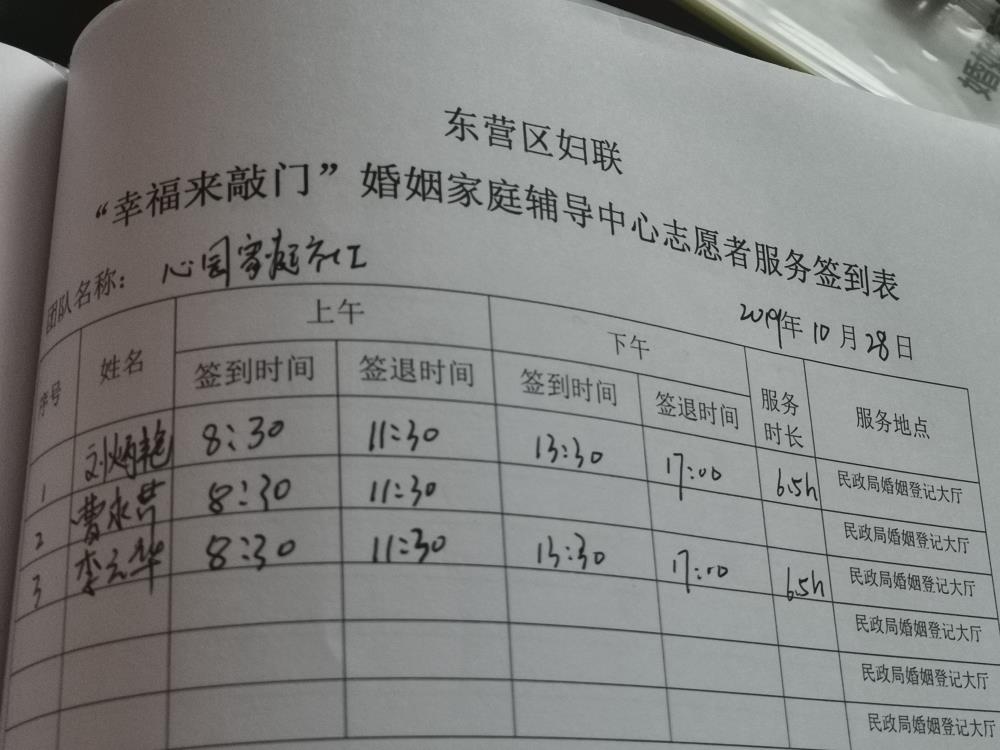 东营区妇联
“幸福来敲门”婚姻家庭辅导中心志愿者服务签到表
团队名称： 心园家庭社工
2019年10月28日
序号 姓名 上午 下午 服务时长 服务地点
签到时间 签退时间 签到时间 签退时间
1 刘炳艳 8:30 11:30 13:30 17:00 6.5h 民政局婚姻登记大厅
2 曹永 8:30 11:30 民政局婚姻登记大厅
3 李云华 8:30 11:30 13:30 17:00 6.5h 民政局婚姻登记大厅
民政局婚姻登记大厅
民政局婚姻登记大厅
民政局婚姻登记大厅